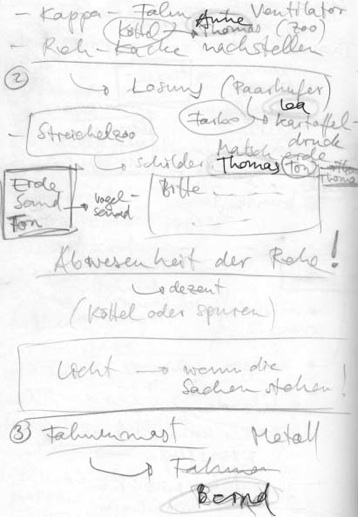 - Kappa - Fahne Ventilator
(Köttel) Anne Thomas (Zoo)
- Reh-Kacke nachstellen
② Losung (Paarhufer)
Lea
Kartoffel-
druck
- Streichelzoo
Schilder
Matsch Erde
Thomas (Ton)
Thomas
Erde
Sand
Ton
Vogel-
sand
Bitte
Abwesenheit der Rehe!
dezent
(Köttel oder Spuren)
Licht → wenn die
Sachen stehen!
③ Fahnenmast Metall
Fahnen
Bernd